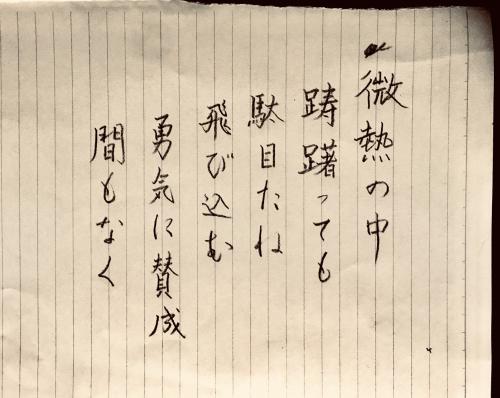 微熱の中
躊躇っても
駄目だね
飛び込む
勇気に賛成
間もなく